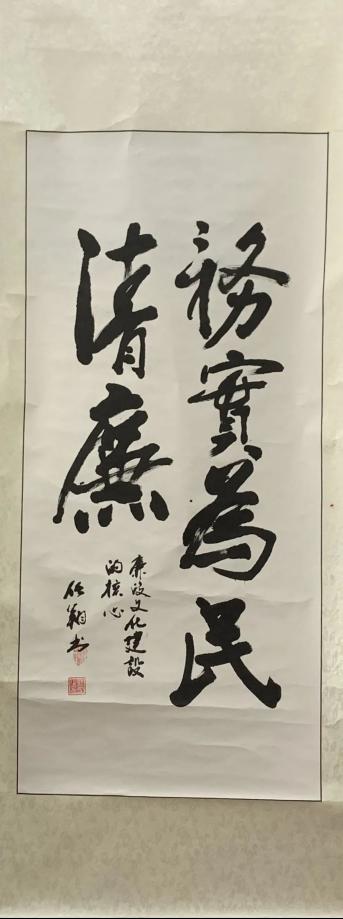 務實為民
清廉
廉政文化建設
的核心
任翔書